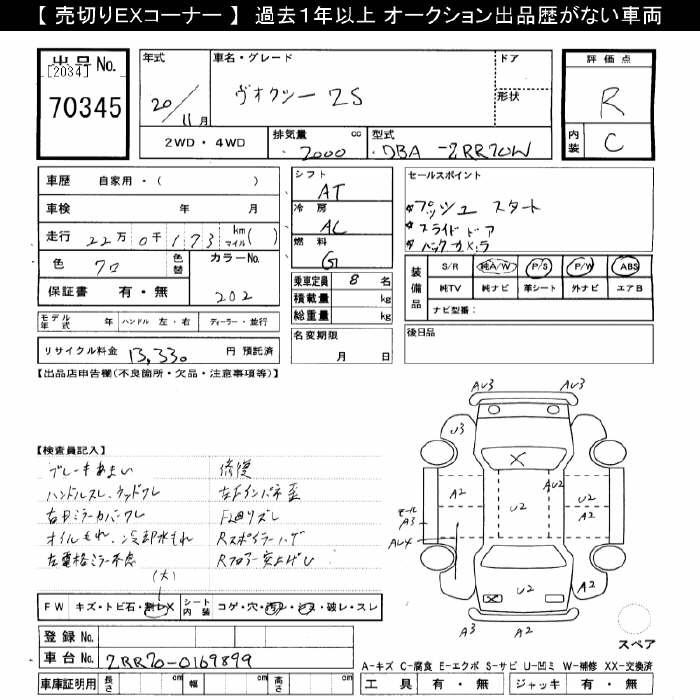 【 売切りEXコーナー 】 過去1年以上 オークション出品歴がない車両
出品No.
[2034]
70345
年式
20/11月
車名・グレード
ヴォクシー ZS
ドア
形状
評価点
R
内装
C
2WD・4WD
排気量 cc
2000
型式
DBA-ZRR70W
車歴 自家用・( )
車検 年 月
走行 22万0千173 km マイル( )
色 クロ
色替
カラーNo.
202
保証書 有・無
シフト
AT
冷房
AC
燃料
G
乗車定員 8 名
積載量 kg
総重量 kg
名変期限
月 日
セールスポイント
*プッシュ スタート
*スライド ドア
*バックカメラ
装備品
S/R 純A/W P/S P/W ABS
純TV 純ナビ 革シート 外ナビ エアB
ナビ型番:
後日品
モデル年式 年 ハンドル 左・右 ディーラー・並行
リサイクル料金 13,330 円 預託済
【出品店申告欄(不良箇所・欠品・注意事項等)】
【検査員記入】
ブレーキあまい
ハンドルスレ、ウッドワレ
右Dミラーカバーワレ
オイルもれ、冷却水もれ
左電格ミラー不良
修復
左右インパネ歪
F廻りズレ
Rスポイラーハゲ
Rフロアー突上げU
(大)
FW キズ・トビ石・割レX
シート内装 コゲ・穴・汚レ・シミ・破レ・スレ
登録 No.
車台 No. ZRR70-0169899
車庫証明用 長さ cm 幅 cm 高さ cm
AU3 AU3
U3 U3
X
AU2
A2 U2 U2
A2
モール
A3
AU4
U2
A2
A3 A3
スペア
A-キズ C-腐食 E-エクボ S-サビ U-凹ミ W-補修 XX-交換済
工具 有・無 ジャッキ 有・無